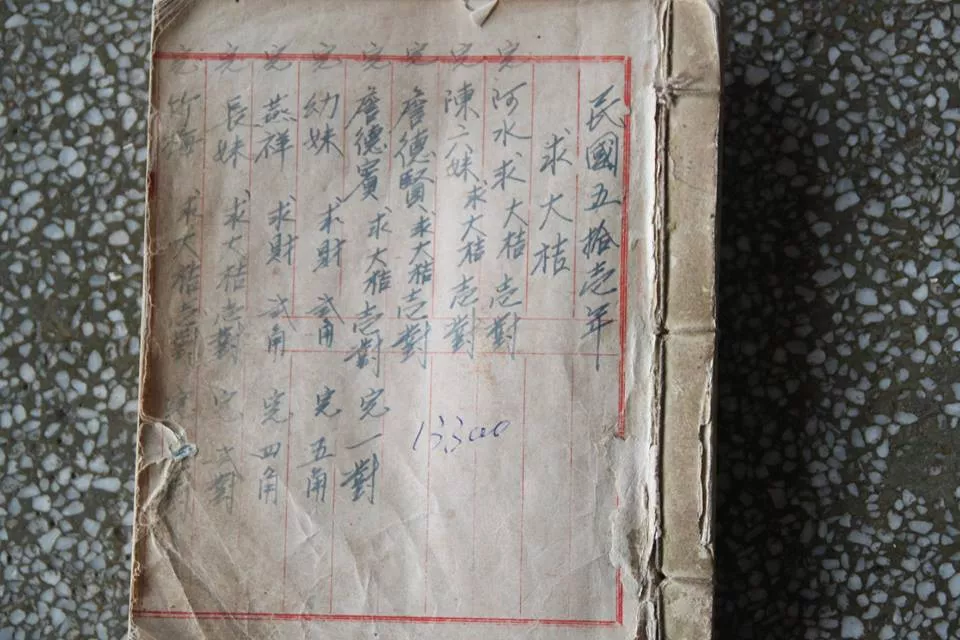 民國五拾壱年
求大桔
完 阿水求大桔壱對
完 陳六妹求大桔壱對
完 詹德賢求大桔壱對
13,300
完 詹德賓求大桔壱對 完一對
完 幼妹 求財 弍角 完五角
完 燕祥 求財 弍角 完四角
完 長妹 求大桔壱對 完 對
完 竹梅 求大桔壱對